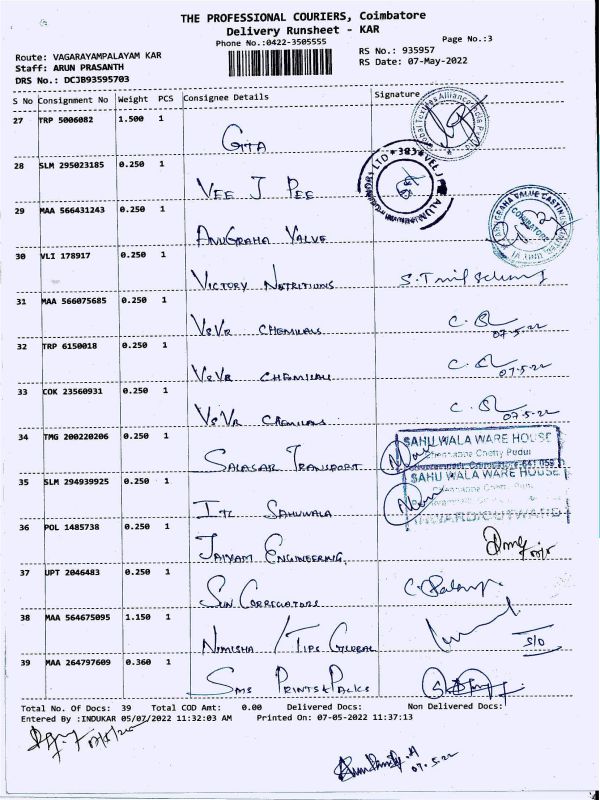 THE PROFESSIONAL COURIERS, Coimbatore
Delivery Runsheet - KAR
Phone No.:0422-3505555
Page No.:3
Route: VAGARAYAMPALAYAM KAR
RS No.: 935957
Staff: ARUN PRASANTH
RS Date: 07-May-2022
DRS No.: DCJB93595703
S No Consignment No Weight PCS Consignee Details Signature
27 TRP 5006082 1.500 1
GITA
28 SLM 295023185 0.250 1
VEE J PEE
29 MAA 566431243 0.250 1
ANUGRAHA VALVE
30 VLI 178917 0.250 1
VICTORY NUTRITIONS
31 MAA 566075685 0.250 1
VSVR CHEMICALS
07-5-22
32 TRP 6150018 0.250 1
VSVR CHEMICALS
07-5-22
33 COK 23560931 0.250 1
VSVR CHEMICALS
07-5-22
34 TMG 200220206 0.250 1
SALASAR TRANSPORT
SAHUWALA WARE HOUSE
Chennappa Chetty Pudur
35 SLM 294939925 0.250 1
ITC SAHUWALA
SAHUWALA WARE HOUSE
INWARD/OUTWARD
36 POL 1485738 0.250 1
JAIRAM ENGINEERING
37 UPT 2046483 0.250 1
SUN CORRUGATORS
38 MAA 564675095 1.150 1
NIMISHA / TIPS GLOBAL
S/O
39 MAA 264797609 0.360 1
SMS PRINTS & PACKS
Total No. Of Docs: 39 Total COD Amt: 0.00 Delivered Docs: Non Delivered Docs:
Entered By :INDUKAR 05/07/2022 11:32:03 AM Printed On: 07-05-2022 11:37:13
07-5-22